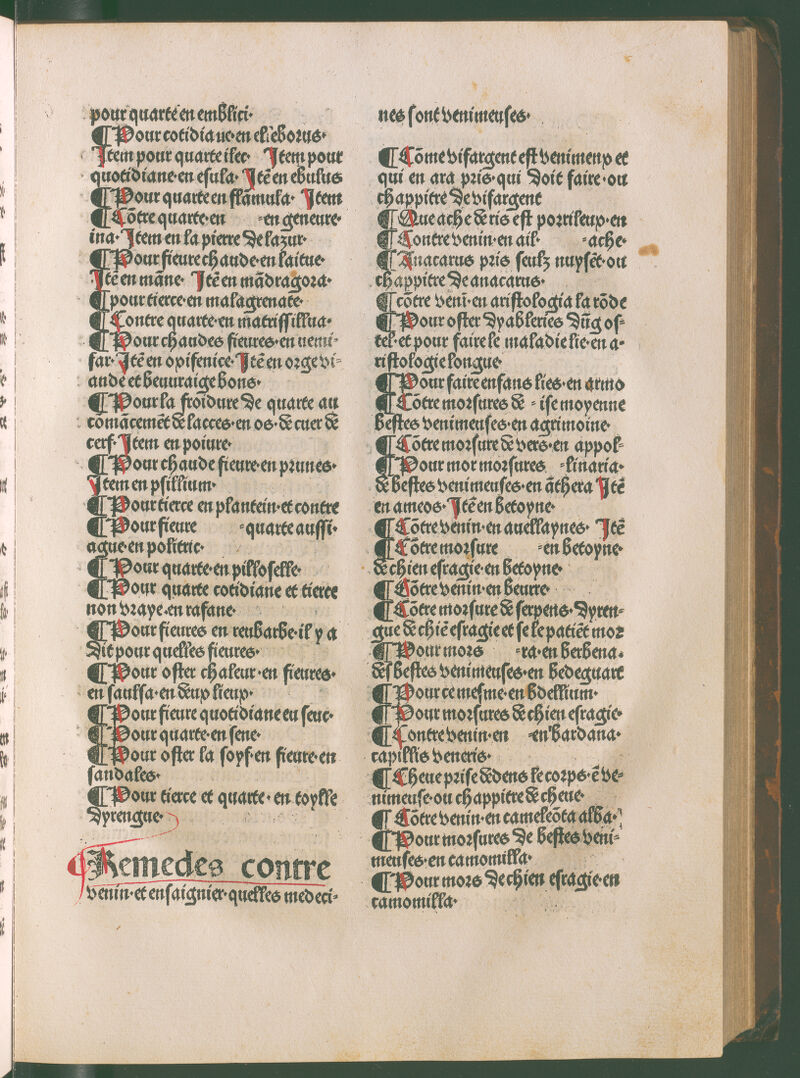 pour quarte en emblici·
¶ Pour cotidiane·en elleborus·
Item pour quarte ilec· Item pour
quotidiane·en esula· Itē en ebulus
¶ Pour quarte en flāmula· Item
¶ Cōtre quarte·en ⸗en geneure·
ina· Item en la pierre de lazur·
¶ Pour fieure chaude·en laitue·
Itē en māne· Itē en mādragora·
¶ pour tierce·en malagrenate·
¶ Contre quarte·en matrissillua·
¶ Pour chaudes fieures·en nemi⸗
far· Itē en opifenice· Itē en orge vi⸗
ande et beuuraige bons·
¶ Pour la froidure de quarte au
cōmācemēt de lacces·en os·de cuer de
cerf· Item en poiure·
¶ Pour chaude fieure·en prunes·
Item en psillium·
¶ Pour tierce en plantein·et contre
¶ Pour fieure ⸗quarte aussi·
ague·en politric·
¶ Pour quarte·en pilloselle·
¶ Pour quarte cotidiane et tierce
non vraye·en rafane·
¶ Pour fieures en reubarbe·il y a
dit pour quelles fieures·
¶ Pour oster chaleur·en fieures·
en saulsa·en deup lieup·
¶ Pour fieure quotidiane en seuc·
¶ Pour quarte·en sene·
¶ Pour oster la soyf·en fieure·en
sandales·
¶ Pour tierce et quarte·en toylle
dyrengue·
¶ Remedes contre
venin·et ensaignier·quelles medeci⸗
nes sont venimeuses·
¶ Cōme vifargent est venimenp et
qui en ara pris·qui doit faire·ou
chappitre de vifargent
¶ Que ache de ris est porrileup·en
¶ Contre venin·en ail· ⸗ache·
¶ Anacarus pris seulz nuysēt·ou
chappitre de anacarus·
¶ cōtre veni̅·en aristologia la rōde
¶ Pour oster dyableries dūg os⸗
tel·et pour faire le maladie lie·en a·
ristologie longue·
¶ Pour faire enfans lies·en armo
¶ Cōtre morsures de ⸗ ise moyenne
bestes venimeuses·en agrimoine·
¶ Cōtre morsure de vers·en appol⸗
¶ Pour mor morsures ⸗linaria·
de bestes venimeuses·en āthera Itē
en ameos· Itē en betoyne·
¶ Cōtre venin·en auellaynes· Itē
¶ Cōtre morsure ⸗en betoyne·
de chien esragie·en betoyne·
¶ Cōtre venin·en beurre·
¶ Cōtre morsure de serpens· dyren⸗
gue de chiē esragie et se le patiēt mor
¶ Pour mors ⸗ra·en berbena·
des bestes venimeuses·en bedeguart
¶ Pour ce mesme·en bdellium·
¶ Pour morsures de chien esragie·
¶ Contre venin·en ⸗en bardana·
capillis veneris·
¶ Cheue prise dedens le corps·ē ve⸗
nimeuse·ou chappitre de cheue·
¶ Cōtre venin·en cameleōta alba·
¶ Pour morsures de bestes veni⸗
meuses·en camomilla·
¶ Pour mors de chien esragie·en
camomilla·